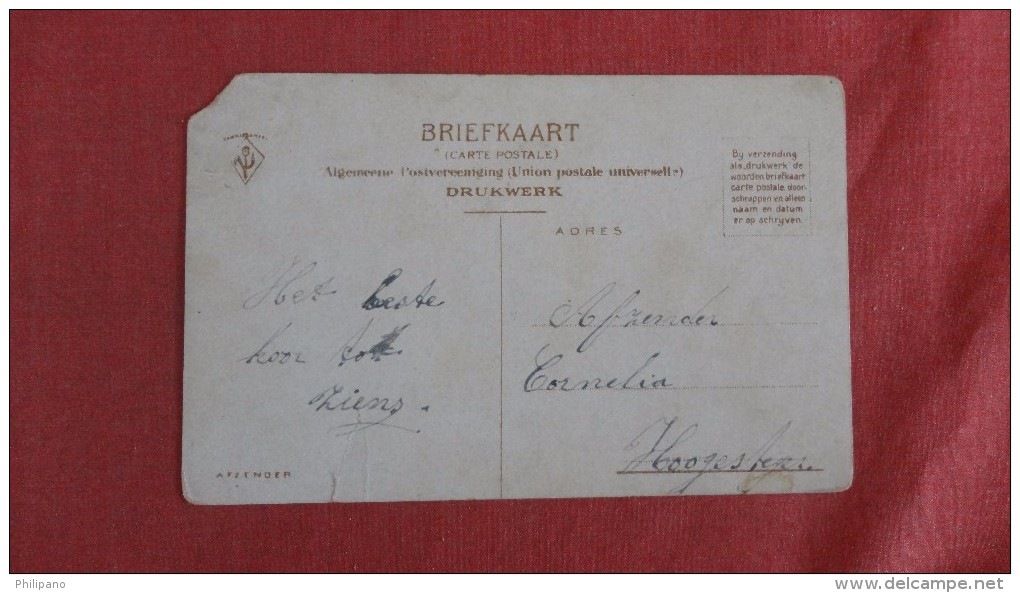 BRIEFKAART
(CARTE POSTALE)
Algemeene Postvereeniging (Union postale universelle)
DRUKWERK
By verzending
als „drukwerk" de
woorden briefkaart
carte postale door
schrappen en alleen
naam en datum
er op schryven.
ADRES
Het beste
hoor tot
ziens.
Afzender
Cornelia
AFZENDER
Philipano
www.delcampe.net